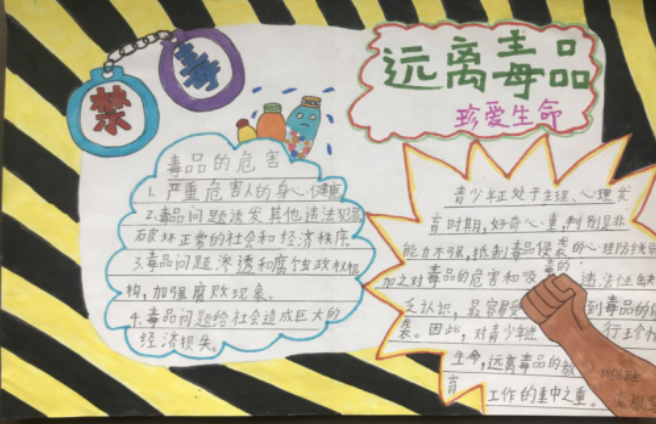 禁
毒
远离毒品
珍爱生命
毒品的危害
1. 严重危害人的身心健康
2. 毒品问题诱发其他违法犯罪
破坏正常的社会和经济秩序
3. 毒品问题渗透和腐蚀政权机
构，加强腐败现象。
4. 毒品问题给社会造成巨大的
经济损失。
青少年正处于生理、心理发
育时期，好奇心重，判别是非
能力不强，抵制毒品侵袭的心理防线
加之对毒品的危害和吸毒的违法性缺
乏认识，最容易受到毒品的
袭。因此，对青少年进行
生命，远离毒品的教
育工作的重中之重。